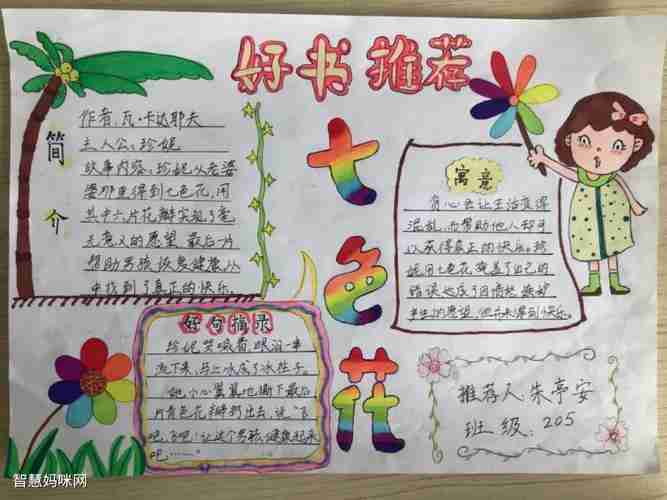 好书推荐
七色花
简介
作者:瓦·卡达耶夫
主人公:珍妮
故事内容:珍妮从老婆
婆那里得到七色花,用
其中六片花瓣实现了毫
无意义的愿望 最后一片
帮助男孩恢复健康,从
中找到了真正的快乐.
寓意
贪心会让生活变得
混乱,而帮助他人却可
以获得真正的快乐.珍
妮用七色花掩盖了自己的
错误达成了因愤怒嫉妒
的愿望,但却未得到快乐.
好句摘录
珍妮哭喊着,眼泪一串
流下来,马上冰成了冰柱子.
她小心翼翼地撕下最后
一片青色花瓣,抛出去,说"飞
吧飞吧!让这个男孩健康起来
吧……"
推荐人:朱亭安
班级:205
智慧妈咪网